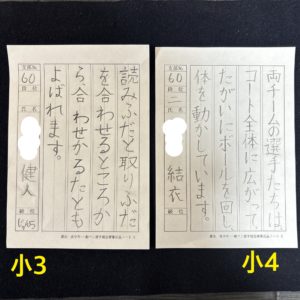 両チームの選手たちは
コート全体に広がって
たがいにボールを回し、
体を動かしています。
支部No.
60
段位
二
氏名
結衣
小4
読みふだと取りふだ
を合わせるところか
ら合わせかるたとも
よばれます。
支部No.
60
段位
氏名
健人
小3